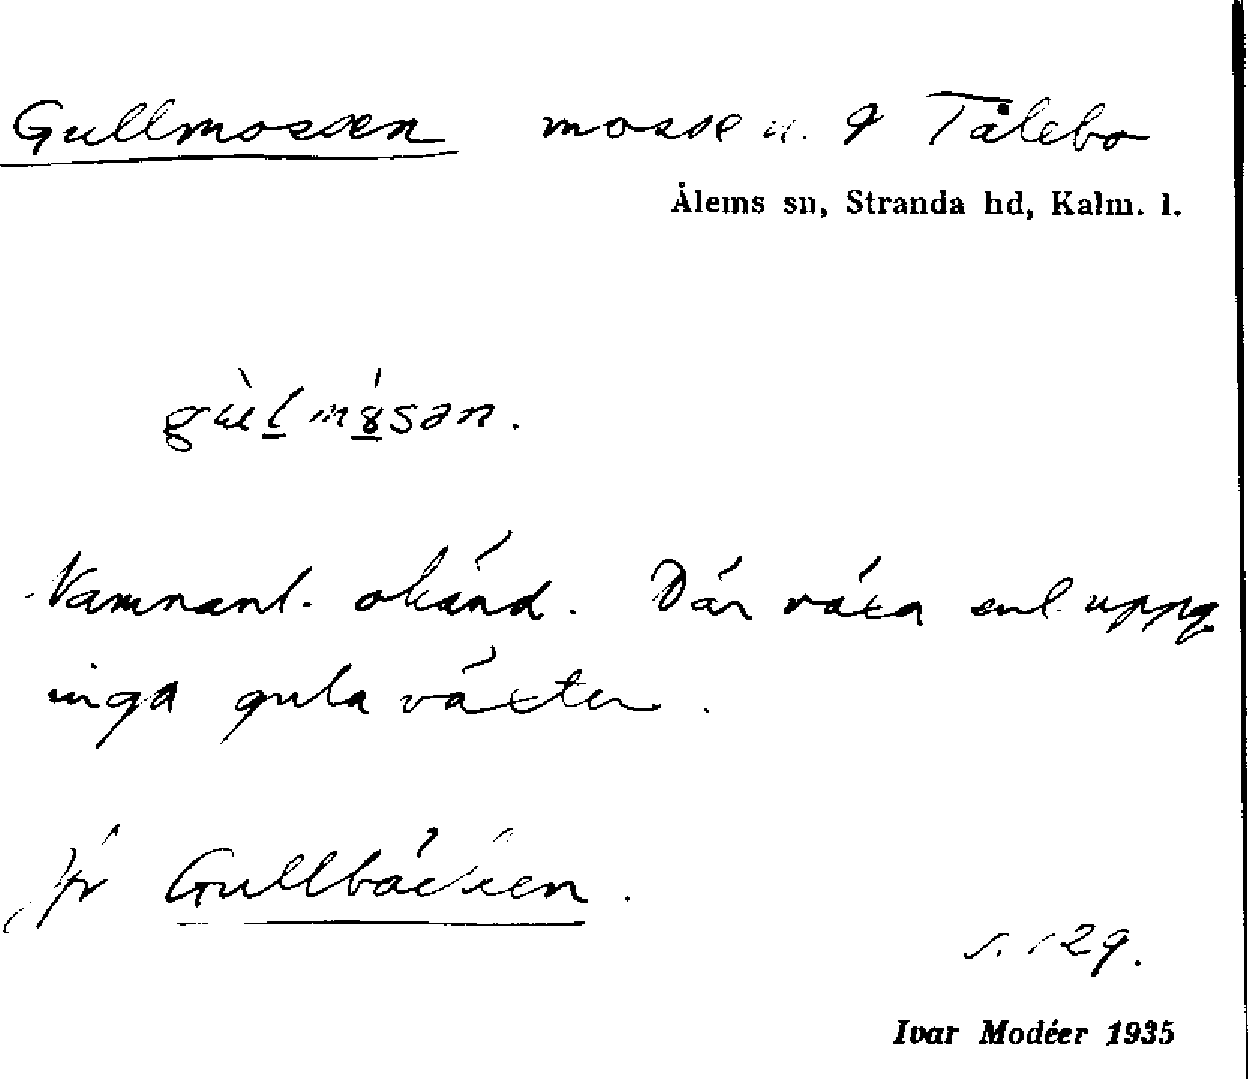 Gullmossen mosse u. g Tålebo
Ålems sn, Stranda hd, Kalm. l.
Namnanl. okänd. Där växa enl. uppg.
inga gula växter.
Jfr Gullbäcken.
s. 129.
Ivar Modéer 1935